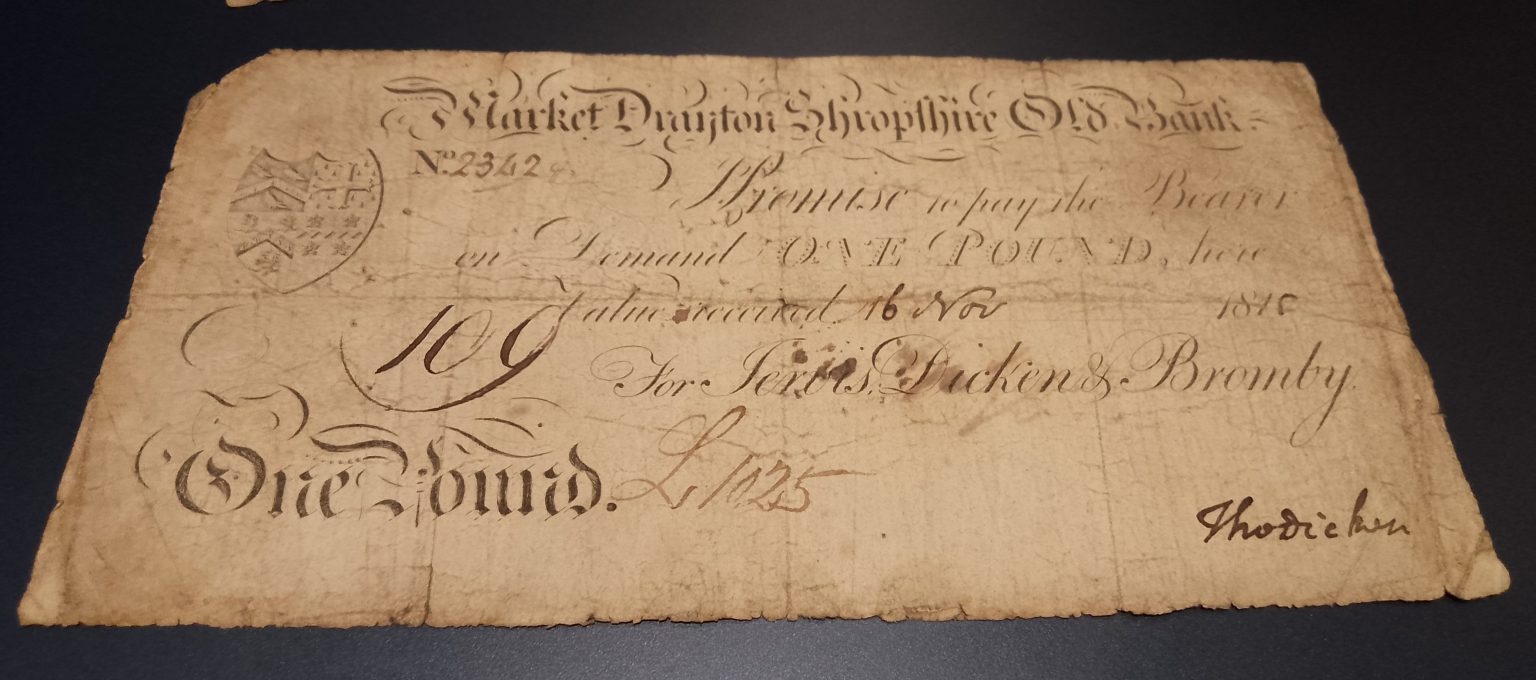 Market Drayton Shropshire Old Bank.
No. 2342
I Promise to pay the Bearer
on Demand ONE POUND, here
Value received 16 Nov
109
For Jervis, Dicken & Bromby.
One Pound.
£1025
Tho Dicken